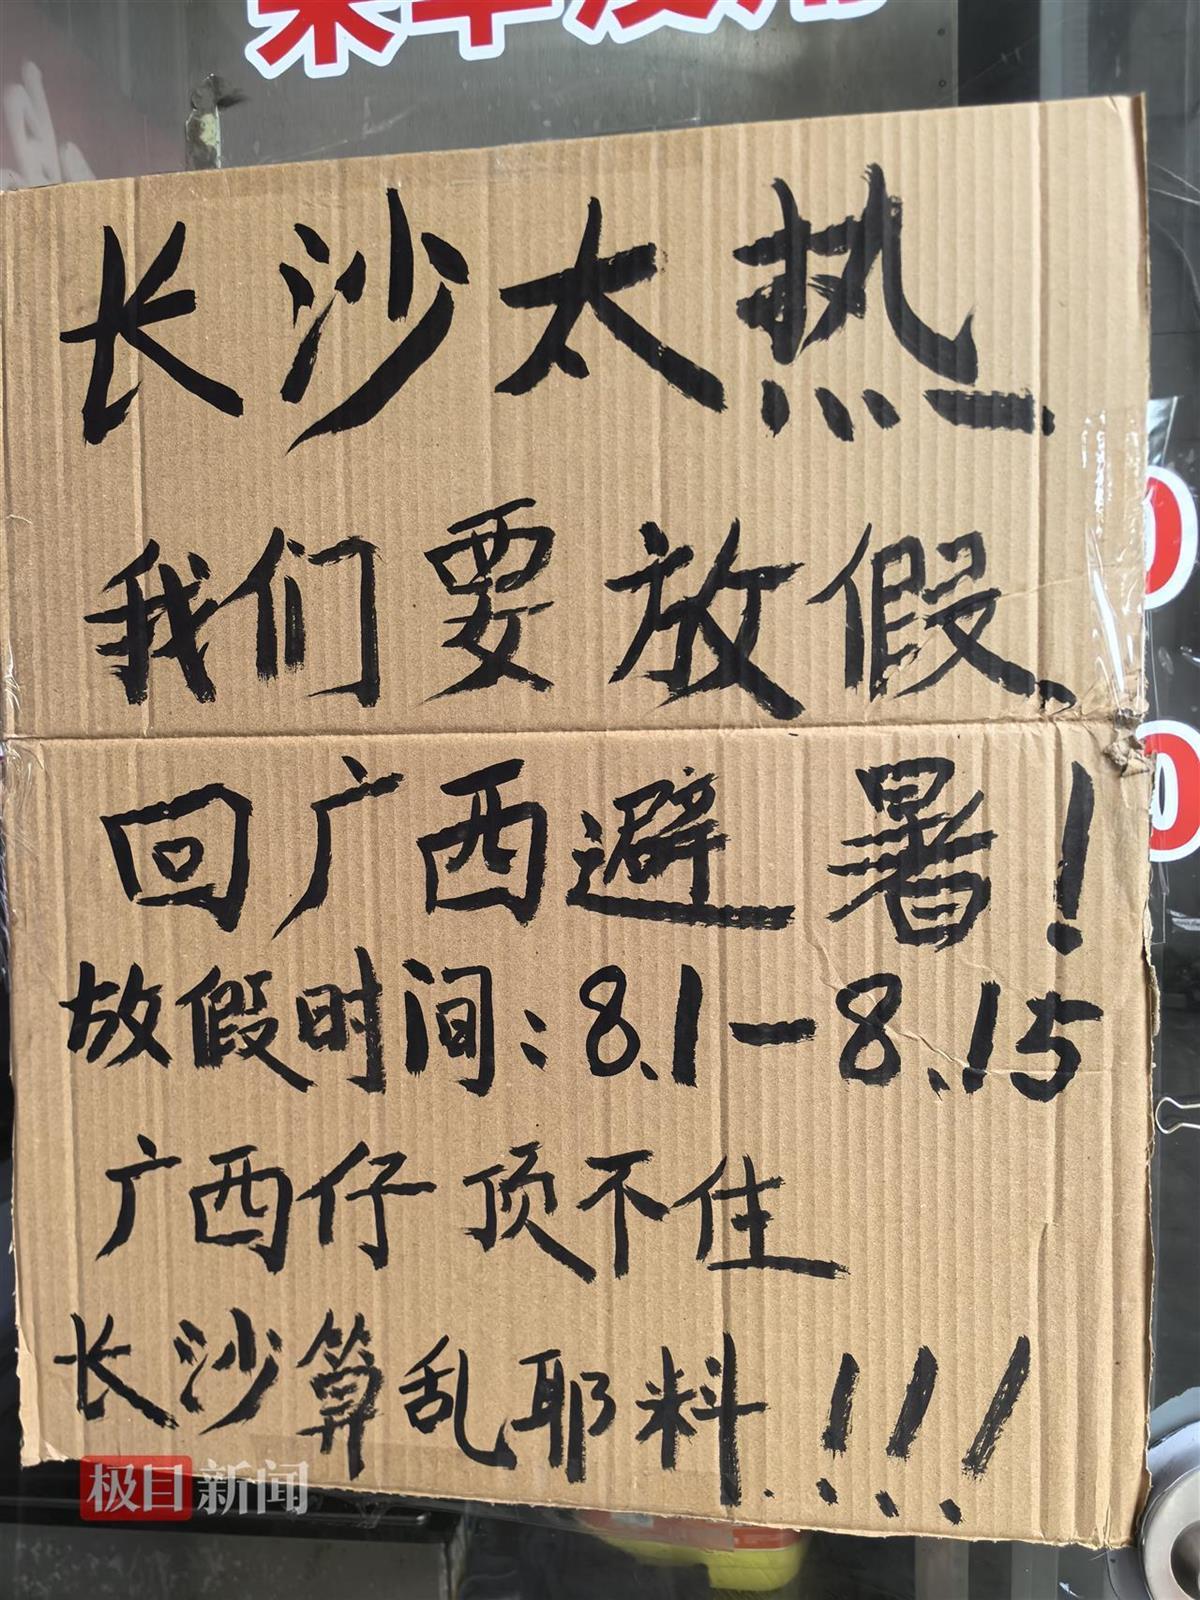 长沙太热
我们要放假
回广西避暑!
放假时间:8.1-8.15
广西仔 顶不住
长沙算乱耶料!!!
极目新闻